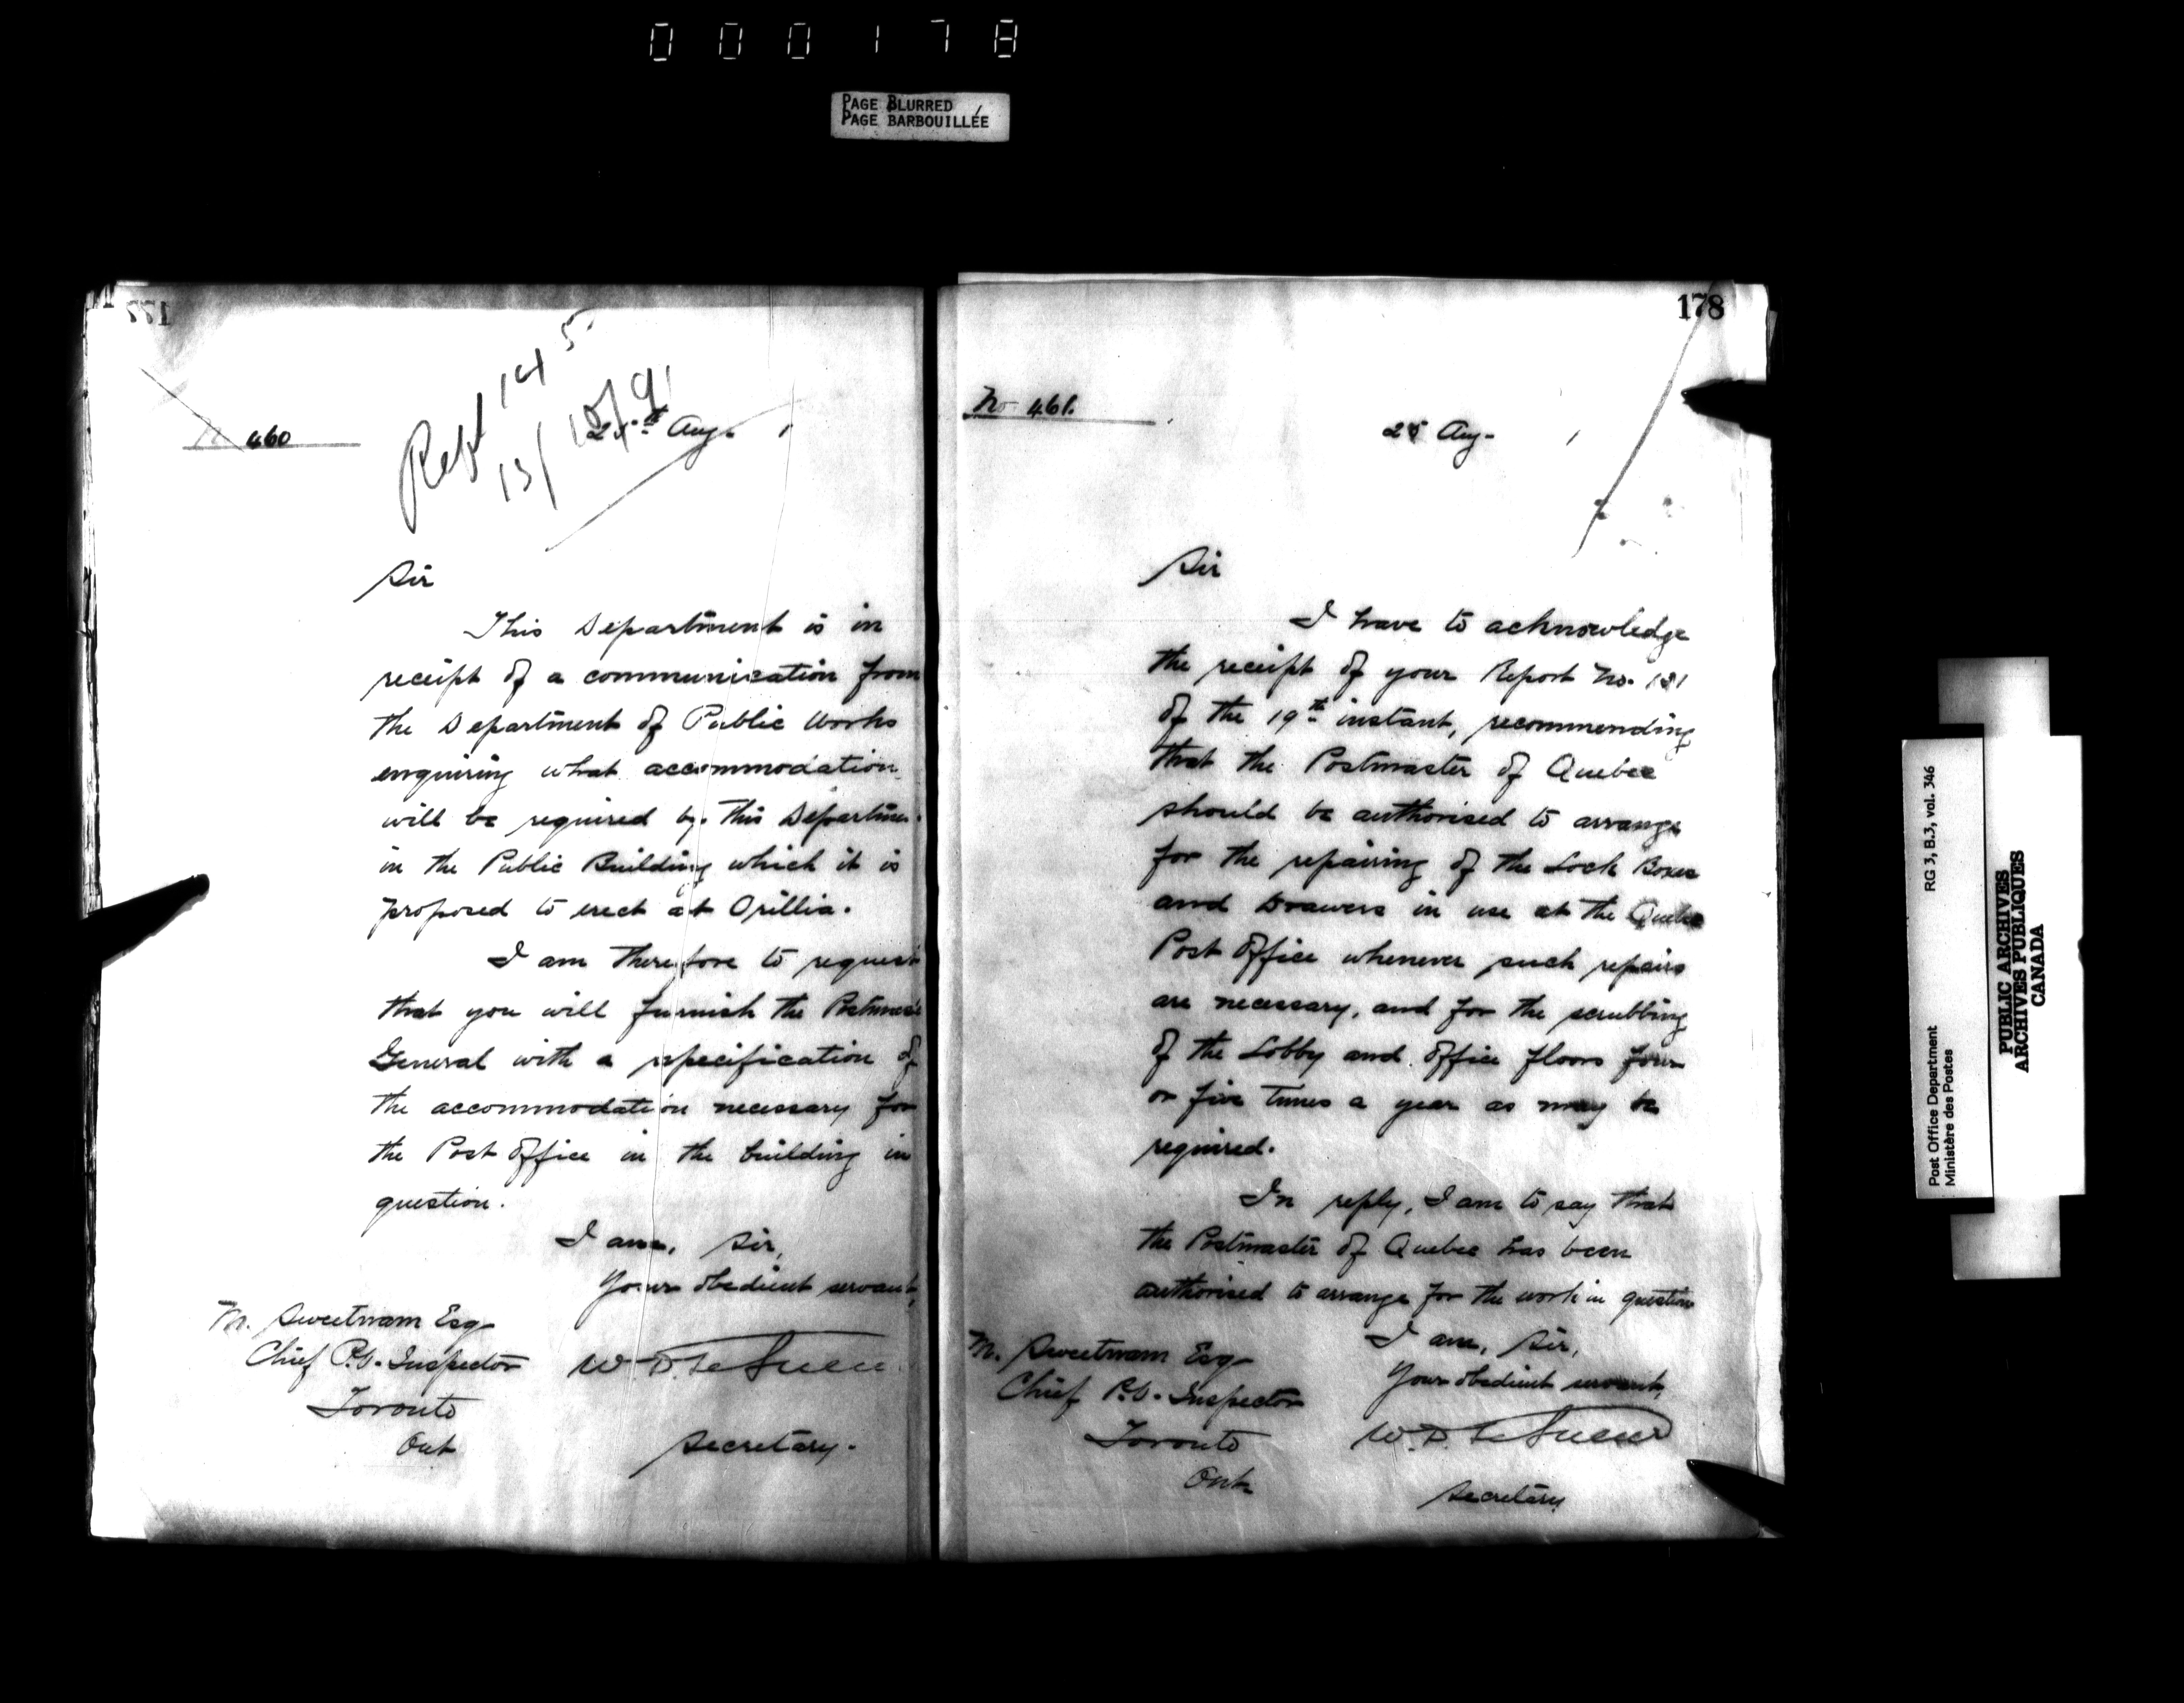 000178
PAGE BLURRED
PAGE BARBOUILLÉE
177
No 460
Rept 145
13/10/91
25th Aug. 1
Sir
This Department is in
receipt of a communication from
the Department of Public Works
enquiring what accommodation
will be required by this Departmen
in the Public Building which it is
proposed to erect at Orillia.
I am therefore to request
that you will furnish the Postmast
General with a specification of
the accommodation necessary for
the Post Office in the building in
question.
I am, Sir,
Your obedient servant,
M. Sweetnam Esq
Chief P.O. Inspector
Toronto
Ont
W. D. LeSueur
Secretary.
178
No 461.
25 Aug. 1
Sir
I have to acknowledge
the receipt of your Report No. 131
of the 19th instant, recommending
that the Postmaster of Quebec
should be authorised to arrange
for the repairing of the Lock Boxes
and Drawers in use at the Quebec
Post Office whenever such repairs
are necessary, and for the scrubbing
of the Lobby and Office floors four
or five times a year as may be
required.
In reply, I am to say that
the Postmaster of Quebec has been
authorised to arrange for the work in question
I am, Sir,
Your obedient servant,
M. Sweetnam Esq
Chief P.O. Inspector
Toronto
Ont
W. D. LeSueur
Secretary
Post Office Department
Ministère des Postes
RG 3, B.3, vol. 346
PUBLIC ARCHIVES
ARCHIVES PUBLIQUES
CANADA